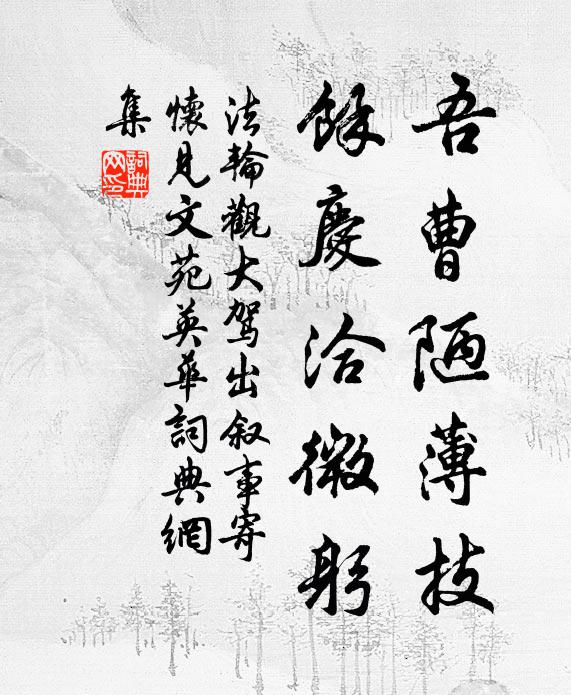 吾曹陋薄技
餘慶洽微躬
法輪觀大駕出叙事寄
懷見文苑英華詞典網
集
詞典
网印